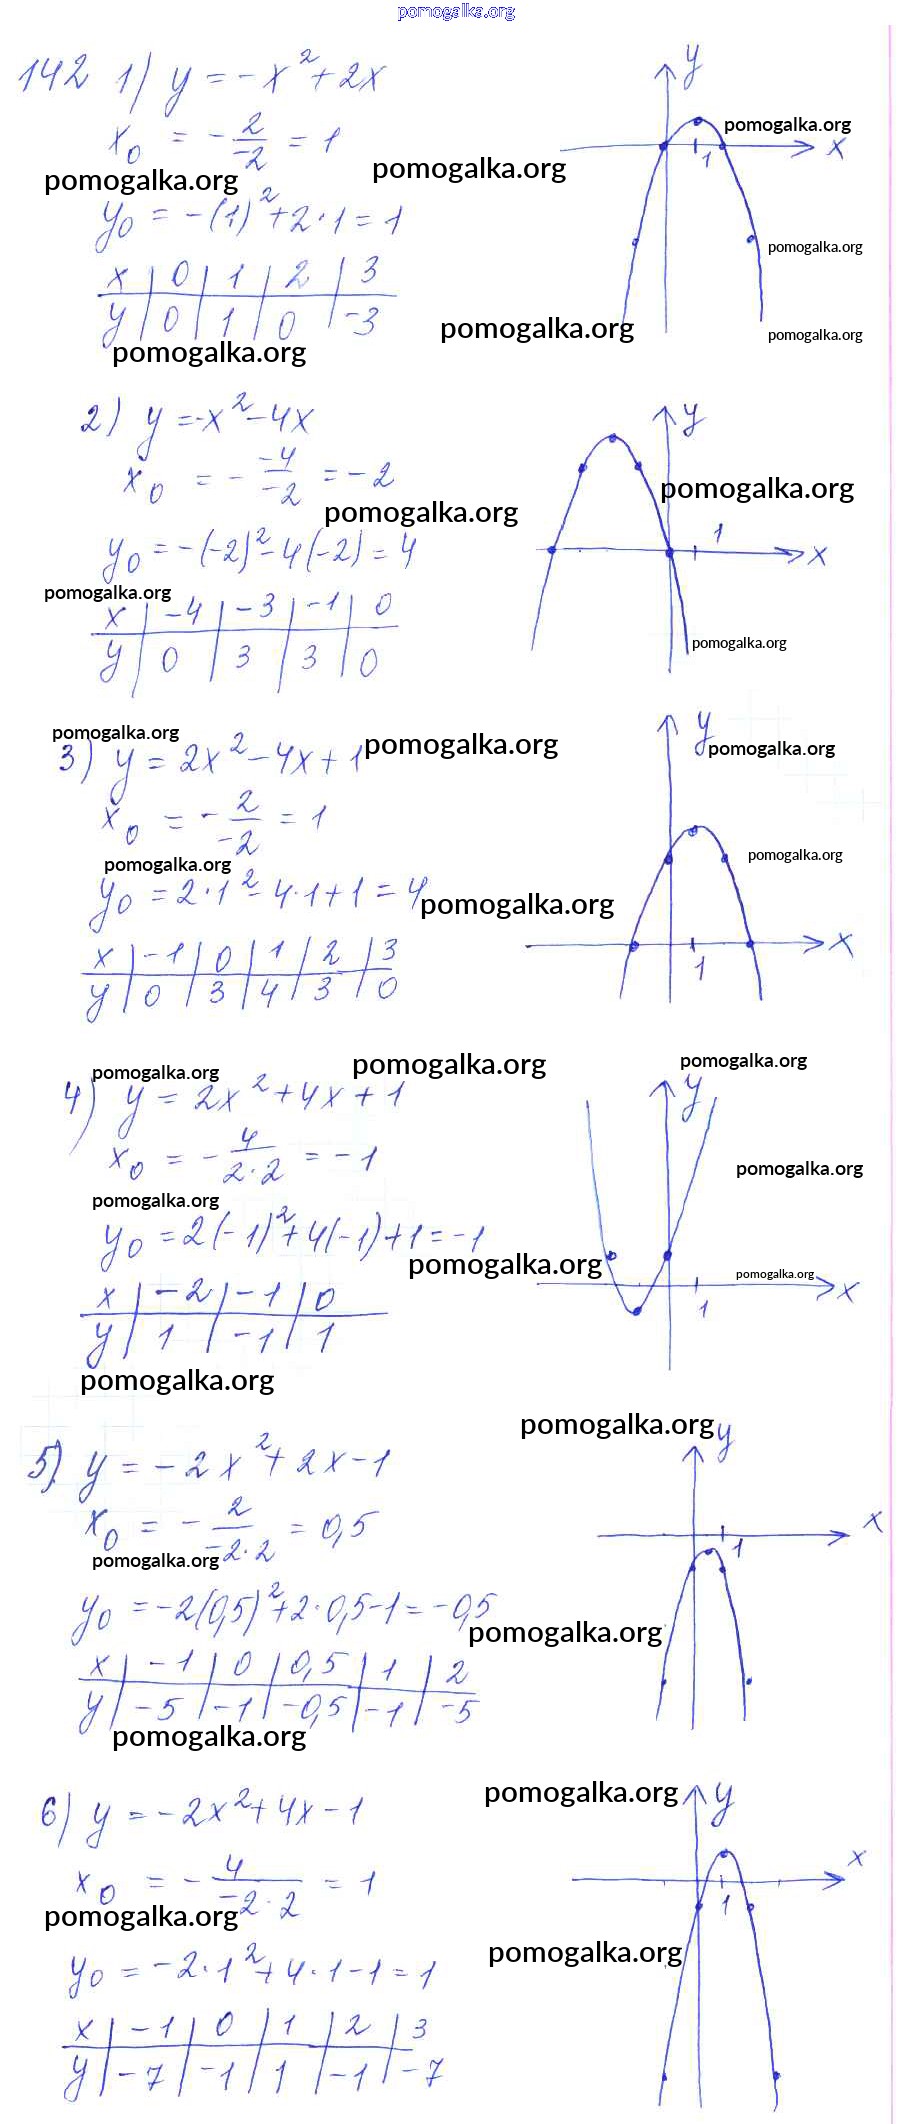 pomogalka.org
142 1) y = -x² + 2x
x₀ = -2/-2 = 1
y₀ = -(1)² + 2·1 = 1
x | 0 | 1 | 2 | 3
y | 0 | 1 | 0 | -3
y
x
1
pomogalka.org
pomogalka.org
pomogalka.org
pomogalka.org
pomogalka.org
pomogalka.org
pomogalka.org
2) y = -x² - 4x
x₀ = - -4/-2 = -2
y₀ = -(-2)² - 4(-2) = 4
x | -4 | -3 | -1 | 0
y | 0 | 3 | 3 | 0
y
1
x
pomogalka.org
pomogalka.org
pomogalka.org
pomogalka.org
3) y = 2x² - 4x + 1
x₀ = - 2/-2 = 1
y₀ = 2·1² - 4·1 + 1 = 4
x | -1 | 0 | 1 | 2 | 3
y | 0 | 3 | 4 | 3 | 0
y
x
1
pomogalka.org
pomogalka.org
pomogalka.org
pomogalka.org
pomogalka.org
pomogalka.org
4) y = 2x² + 4x + 1
x₀ = - 4/2·2 = -1
y₀ = 2(-1)² + 4(-1) + 1 = -1
x | -2 | -1 | 0
y | 1 | -1 | 1
y
x
1
pomogalka.org
pomogalka.org
pomogalka.org
pomogalka.org
pomogalka.org
pomogalka.org
pomogalka.org
pomogalka.org
5) y = -2x² + 2x - 1
x₀ = - 2/-2·2 = 0,5
y₀ = -2(0,5)² + 2·0,5 - 1 = -0,5
x | -1 | 0 | 0,5 | 1 | 2
y | -5 | -1 | -0,5 | -1 | -5
y
x
1
pomogalka.org
pomogalka.org
pomogalka.org
pomogalka.org
6) y = -2x² + 4x - 1
x₀ = - 4/-2·2 = 1
y₀ = -2·1² + 4·1 - 1 = 1
x | -1 | 0 | 1 | 2 | 3
y | -7 | -1 | 1 | -1 | -7
y
x
1
pomogalka.org
pomogalka.org
pomogalka.org